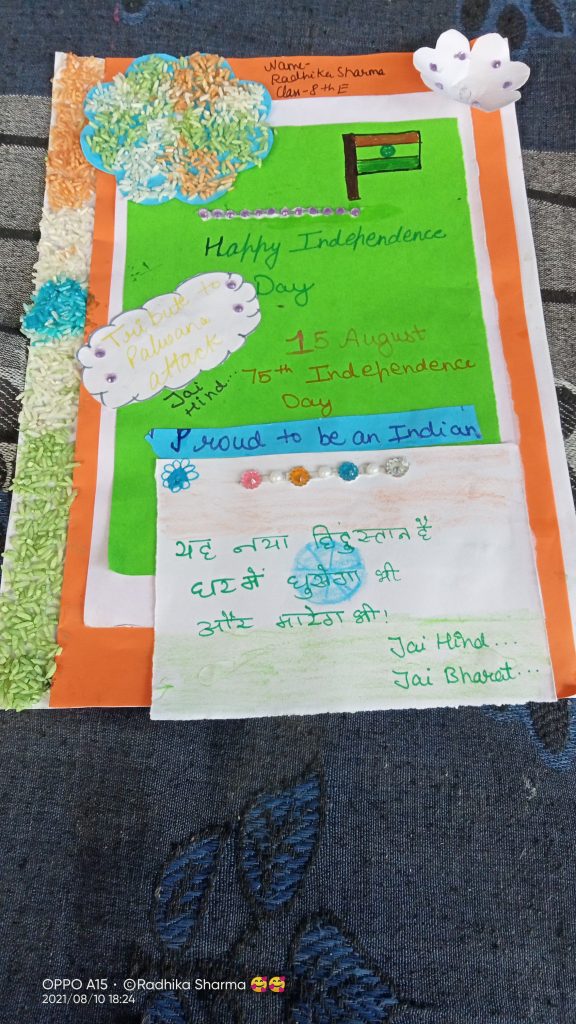 Name-
Radhika Sharma
Class-8th E
Happy Independence
Day
Tribute to
Palwana
attack
Jai
Hind...
15 August
75th Independence
Day
Proud to be an Indian
यह नया हिंदुस्तान है
घर में घुसेगा भी
और मारेगा भी!
Jai Hind...
Jai Bharat...
OPPO A15 · ©Radhika Sharma 🥰🥰
2021/08/10 18:24